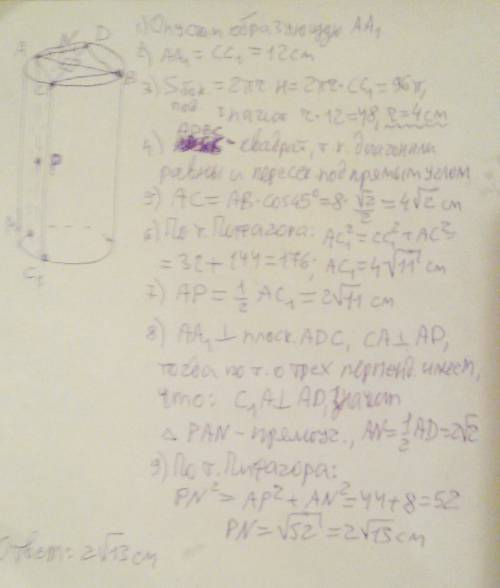 1) Опустим образующую AA₁
2) AA₁ = CC₁ = 12 см
3) Sбок = 2πr·H = 2πr·CC₁ = 96π,
пов
значит r·12 = 48, r = 4 см
4) ADBC - квадрат, т.к. диагонали
равны и пересек. под прямым углом
5) AC = AB·cos45° = 8·√2/2 = 4√2 см
6) По т. Пифагора: AC₁² = CC₁² + AC² =
= 32 + 144 = 176; AC₁ = 4√11 см
7) AP = 1/2 AC₁ = 2√11 см
8) AA₁ ⊥ плоск. ADC, CA ⊥ AD,
тогда по т. о трех перпенд. имеем,
что: C₁A ⊥ AD, значит
△ PAN - прямоуг., AN = 1/2 AD = 2√2
9) По т. Пифагора:
PN² = AP² + AN² = 44 + 8 = 52
PN = √52 = 2√13 см
Ответ: 2√13 см
A
N
D
C
B
P
A₁
C₁